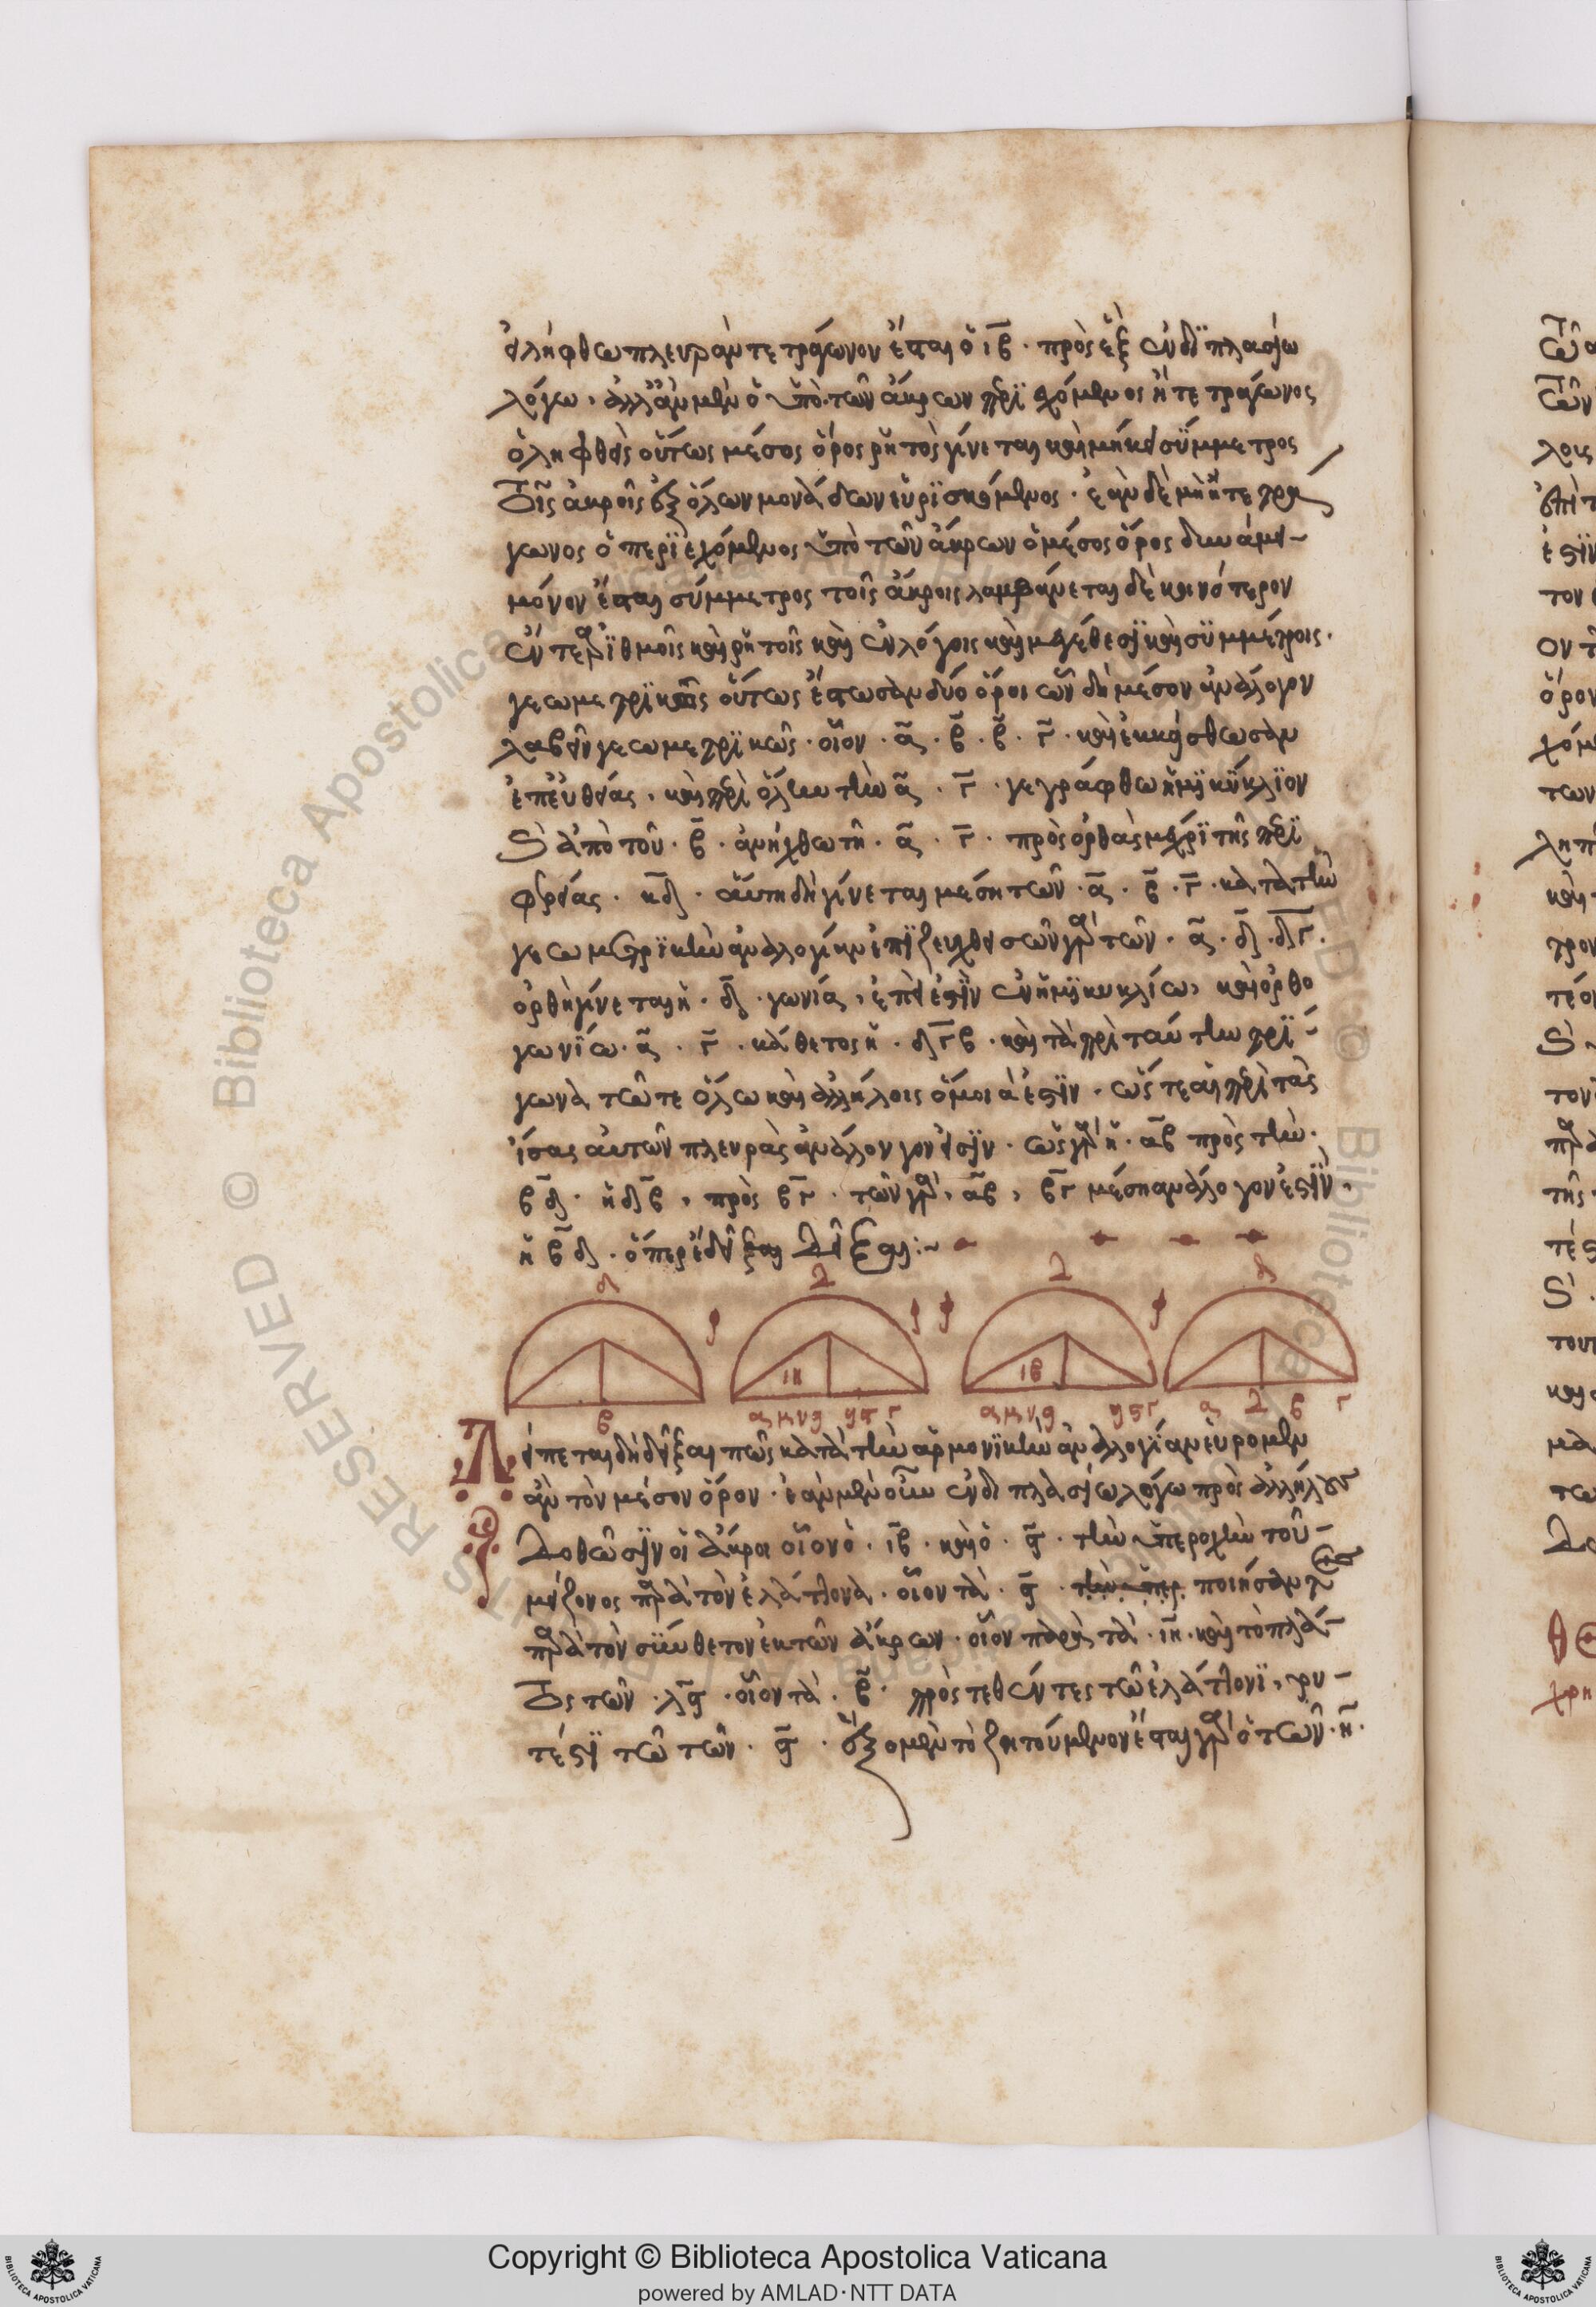 εἰλήφθω πλευρὰν τετράγωνον ἔσται ὁ ιβ · πρὸς ἓξ ἐν διπλασίω
λόγω · ἀλλ' ἂν μὲν ὁ ὑπὸ τῶν ἄκρων περιεχόμενος ἢ τετράγωνος
ὁ ληφθεὶς οὕτως μέσος ὅρος ῥητὸς γίνεται καὶ μήκει σύμμετρος
τοῖς ἄκροις ἐξ ὅλων μονάδων εὑρισκόμενος · ἐὰν δὲ μὴ ἢ τετρα
γωνος ὁ περιεχόμενος ὑπὸ τῶν ἄκρων ὁ μέσος ὅρος δυνάμει
μόνον ἔσται σύμμετρος τοῖς ἄκροις λαμβάνεται δὲ κοινότερον
ἔν τε ἀριθμοῖς καὶ ῥητοῖς καὶ ἐν λόγοις καὶ μεγέθεσι καὶ συμμέτροις ·
γεωμετρικῶς οὕτως ἔστωσαν δύο ὅροι ὧν δεῖ μέσον ἀνάλογον
λαβεῖν γεωμετρικῶς · οἷον · α · β · β · γ · καὶ ἐκκείσθωσαν
ἐπ' εὐθείας · καὶ περὶ ὅλην τὴν α · γ · γεγράφθω ἡμικύκλιον
καὶ ἀπὸ τοῦ · β · ἀνήχθω τῆ · α · γ · πρὸς ὀρθὰς μέχρι τῆς περι
φερείας · κδ · αὕτη δὴ γίνεται μέση τῶν · α · β · γ · κατὰ τὴν
γεωμετρικὴν ἀναλογίαν ἐπιζευχθεισῶν γὰρ τῶν · α · δ · δγ ·
ὀρθὴ γίνεται ἡ · δ · γωνία, ἐπεὶ ἐστὶν ἐν ἡμικυκλίω, καὶ ὀρθο
γωνίω · α · γ · κάθετος ἡ · δγβ · καὶ τὰ περὶ ταύτην τρί
γωνα τῶ τε ὅλω καὶ ἀλλήλοις ὅμοιά ἐστιν · ὥστε αἱ περὶ τὰς
ἴσας αὐτῶν πλευρὰς ἀνάλογον γον εἰσὶν · ὡς γὰρ ἡ · αβ πρὸς τὴν ·
βδ · ἡ δβ, πρὸς βγ · τῶν γὰρ, αβ, βγ μέση ἀνάλογον ἐστὶν,
ἡ βδ · ὅπερ ἔδει δεῖξαι :~
δ 2 2 δ
ιη ιβ
β α μ ν γ γ ς γ α μ ν γ γ ς γ α 2 β γ
Λείπεται δὴ δεῖξαι πῶς κατὰ τὴν ἁρμονικὴν ἀναλογίαν εὕρομεν
ἂν τὸν μέσον ὅρον · ἐὰν μὲν οὖν ἐν διπλασίω λόγω πρὸς ἀλλήλους
δοθῶσιν οἱ ἄκροι οἷον ὁ · ιβ · καὶ ὁ · ς · τὴν ὑπεροχὴν τοῦ
μείζονος παρὰ τὸν ἐλάττονα · οἷον τὰ · ς · τὴν ὑπερ ποιήσαντας
παρὰ τὸν σύνθετον ἐκ τῶν ἄκρων · οἷον παρὰ τὰ · ιη · καὶ τὸ πλά
τος τῶν · λς · οἷον τὰ · β · προστεθέντες τῶ ἐλάττονι, του
τέστι τῶ τῶν · ς · ἕξομεν τὸ ζητούμενον ἔσται γὰρ ὁ τῶν · η ·